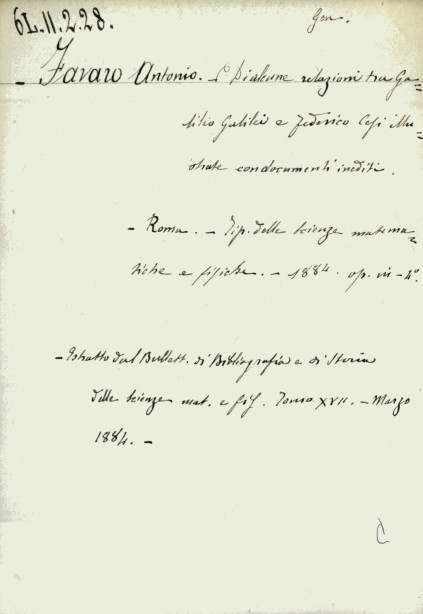 6L.11.2.28.
Gen.
- Favaro Antonio. - Di alcune relazioni tra Ga=
lileo Galilei e Federico Cesi illu=
strate con documenti inediti.
- Roma. - Tip. delle scienze matema=
tiche e fisiche. - 1884. op. in - 4°.
- Estratto dal Bullett. di Bibliografia e di Storia
delle scienze mat. e fis. Tomo XVII. - Marzo
1884. -